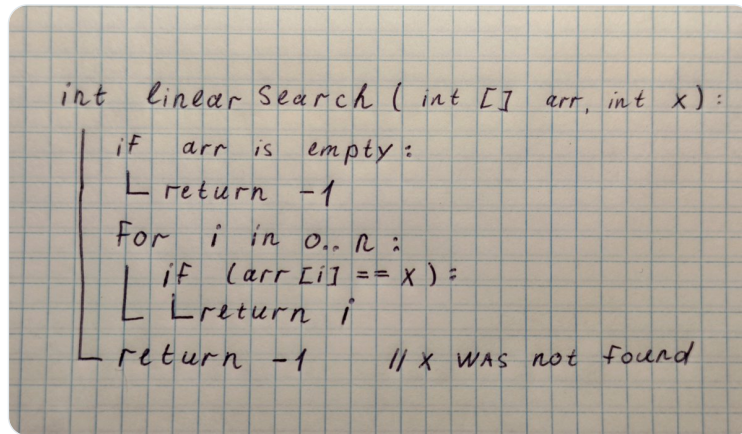 int linear Search ( int [] arr, int x ) :
if arr is empty :
return -1
for i in 0.. n :
if (arr [i] == x ) :
return i
return -1 // x was not found